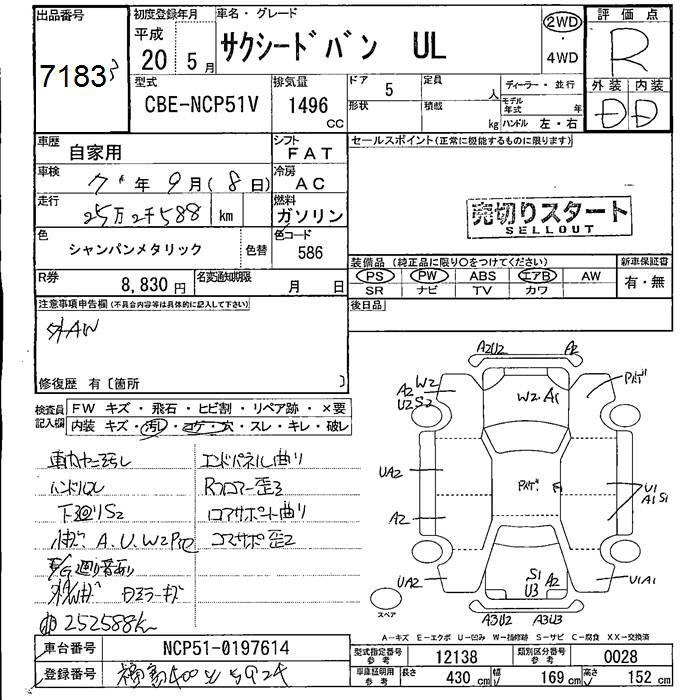 出品番号 初度登録年月 車名・グレード 評価点
7183 平成 20 5月 サクシードバン UL 2WD 4WD R
型式 CBE-NCP51V 排気量 1496 CC
ドア 5 定員 人 ディーラー・並行
形状 積載 kg モデル年式 年 ハンドル 左・右
外装 内装
D D
車歴 自家用 シフト FAT
車検 年 9月(8日) 冷房 AC
走行 25万2千588 km 燃料 ガソリン
色 シャンパンメタリック 色替 色コード 586
R券 8,830円 名変通知期限 月 日
セールスポイント(正常に機能するものに限ります)
売切りスタート
SELLOUT
装備品(純正品に限り○をつけてください) 新車保証書
PS PW ABS エアB AW 有・無
SR ナビ TV カワ
後日品
注意事項申告欄(不具合内容等は具体的に記入して下さい)
外AW
修復歴 有〔箇所 〕
検査員記入欄 FW キズ・飛石・ヒビ割・リペア跡・×要
内装 キズ・汚レ・コゲ・穴・スレ・キレ・破レ
ハンドルスレ
下廻りS2
エンドパネル曲り
Rフロアー歪ミ
コアサポート曲り
252588K
A2U2 A2
W2 A2 U2 S2
W2.A1
UA2
A2
UA2
U1 A1 S1
U1A1
S1 U3 A2
A3U2 A3U3
スペア
A-キズ E-エクボ U-凹み W-補修跡 S-サビ C-腐食 XX-交換済
車台番号 NCP51-0197614
登録番号
型式指定番号 参考 12138 類別区分番号 参考 0028
車庫証明用 参考 長さ 430 cm 幅 169 cm 高さ 152 cm